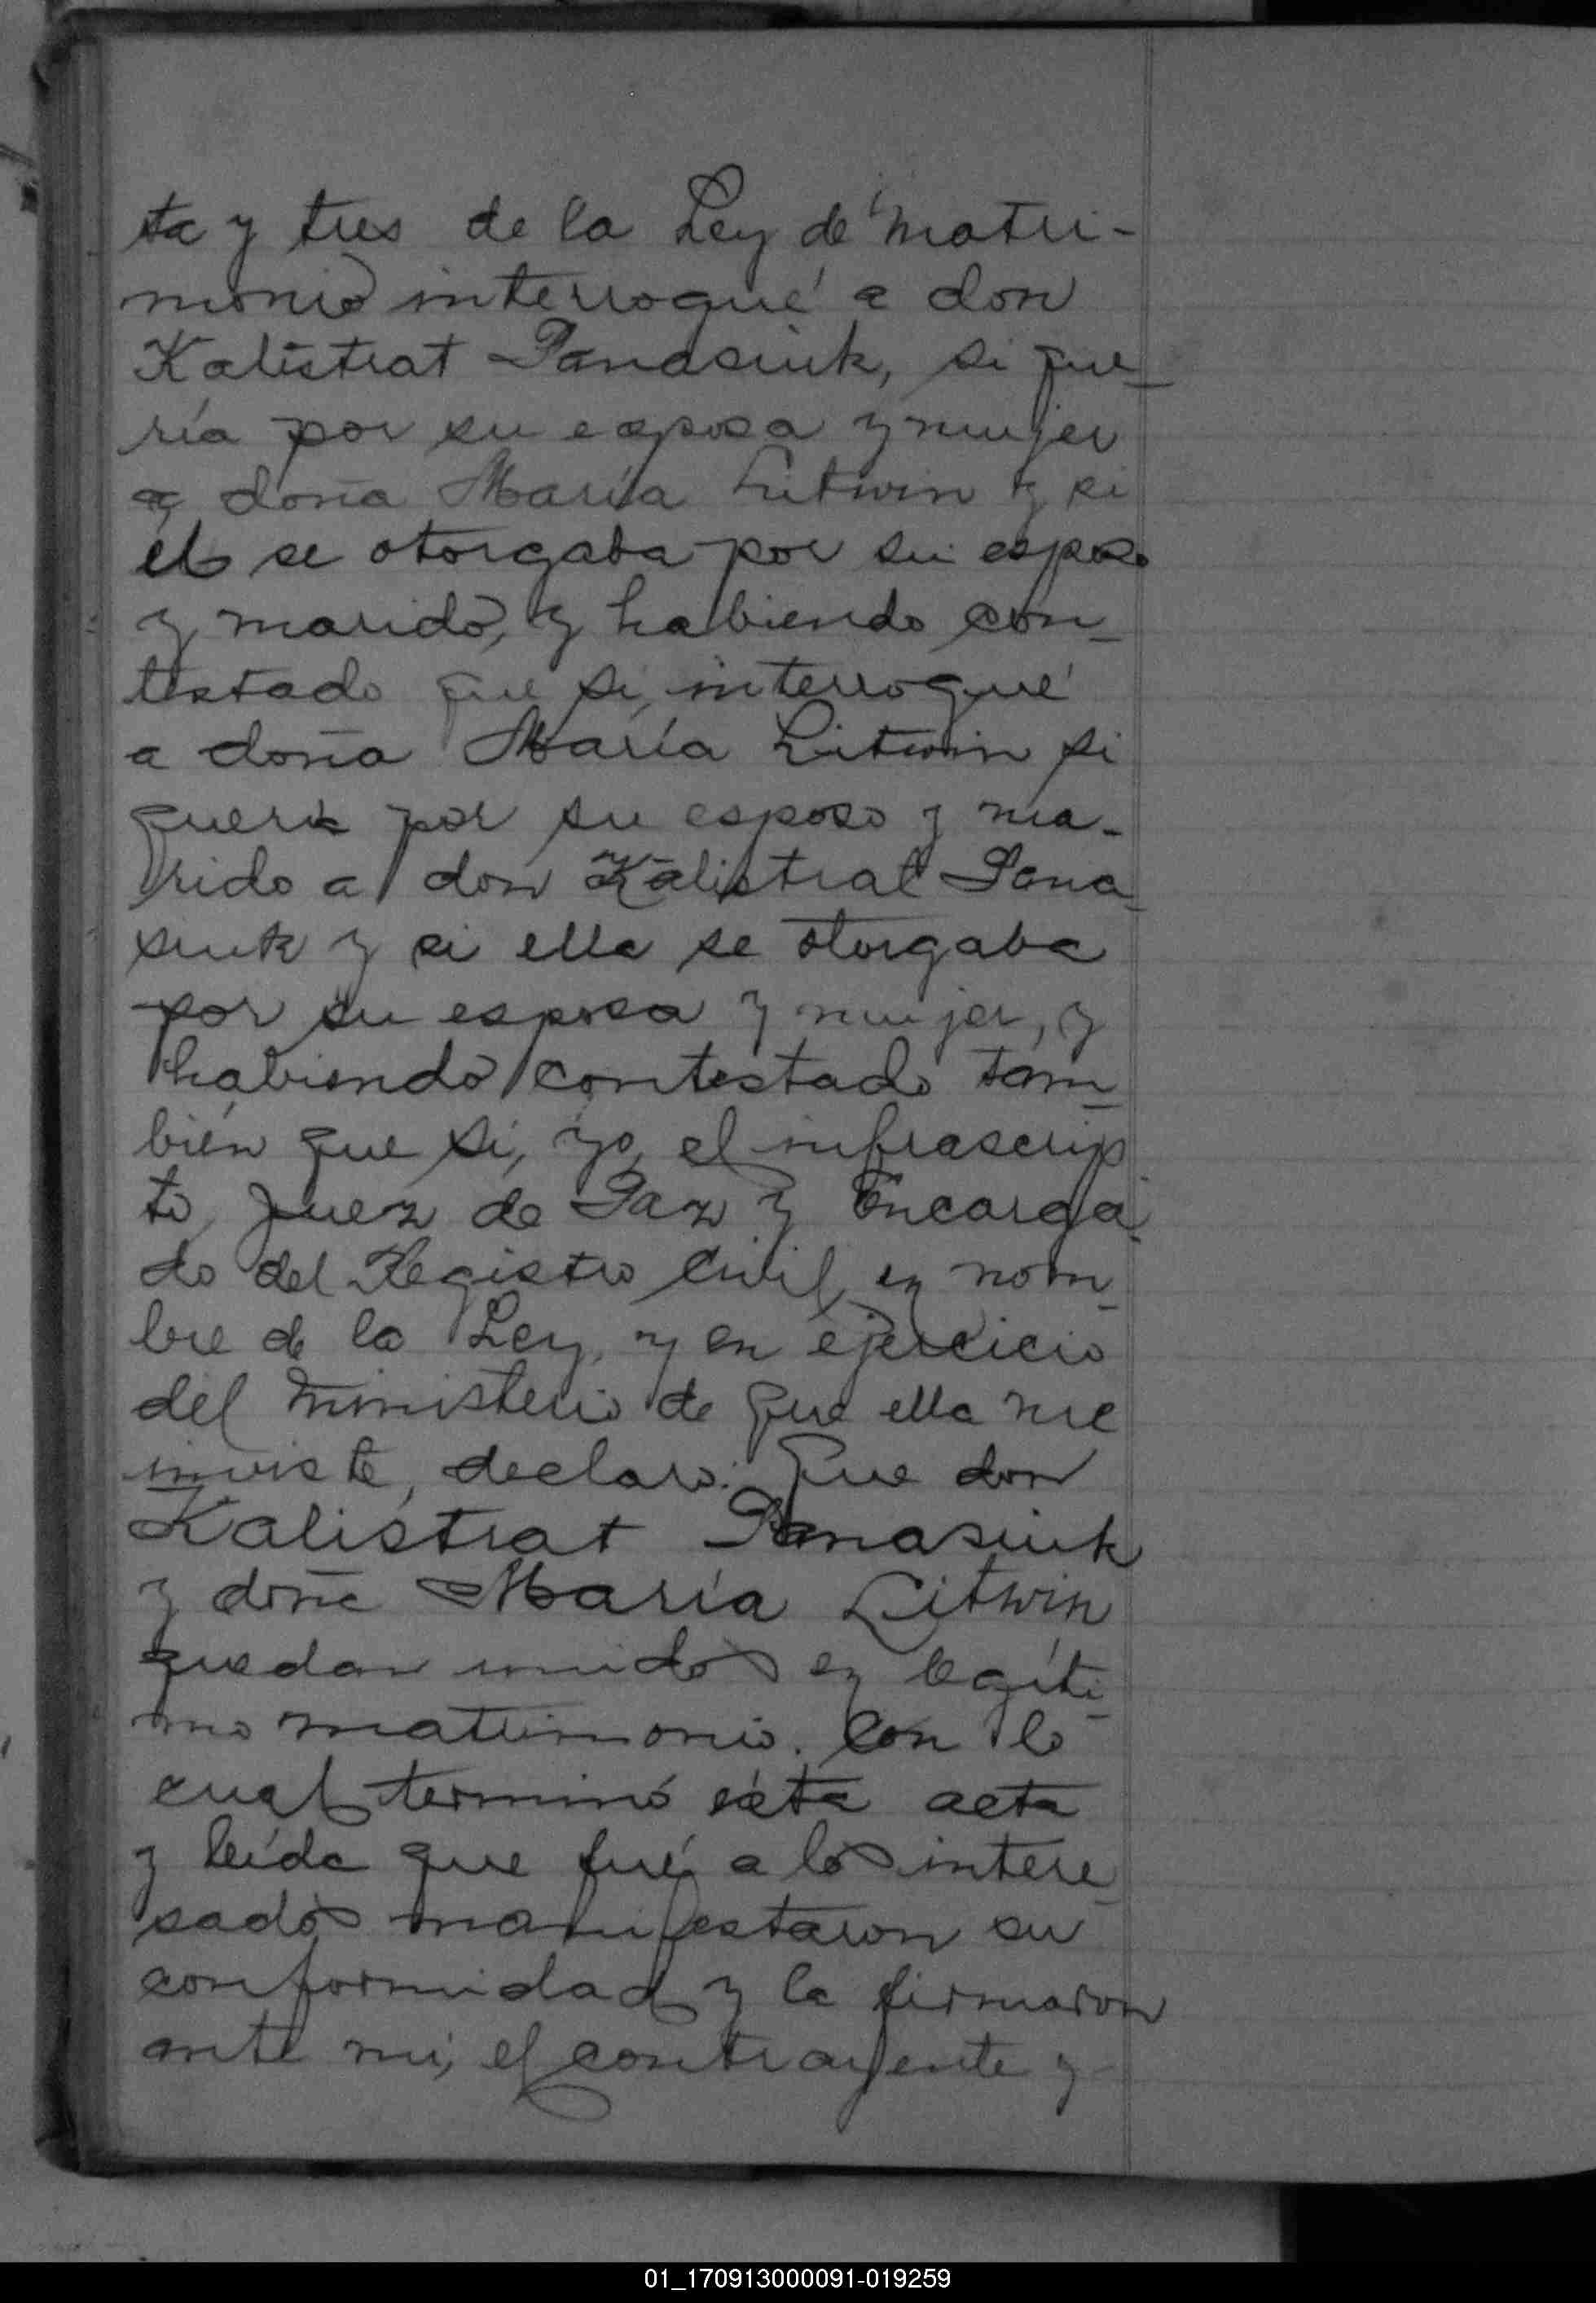 ta y tres de la Ley de Matri-
monio interrogué a don
Kalistrat Panasiuk, si que-
ría por su esposa y mujer
a doña María Litwin y si
él se otorgaba por su esposo
y marido, y habiendo con-
testado que si, interrogué
a doña María Litwin si
quería por su esposo y ma-
rido a don Kalistrat Pana-
siuk y si ella se otorgaba
por su esposa y mujer, y
habiendo contestado tam-
bién que si, yo, el infrascrip
to, Juez de Paz y Encarga-
do del Registro Civil, en nom-
bre de la Ley, y en ejercicio
del ministerio de que ella me
inviste, declaro: Que don
Kalistrat Panasiuk
y doña María Litwin
quedan unidos en legíti-
mo matrimonio. Con lo
cual terminó ésta acta
y leída que fué a los intere-
sados manifestaron su
conformidad y la firmaron
ante mi, el contrayente y
01_170913000091-019259